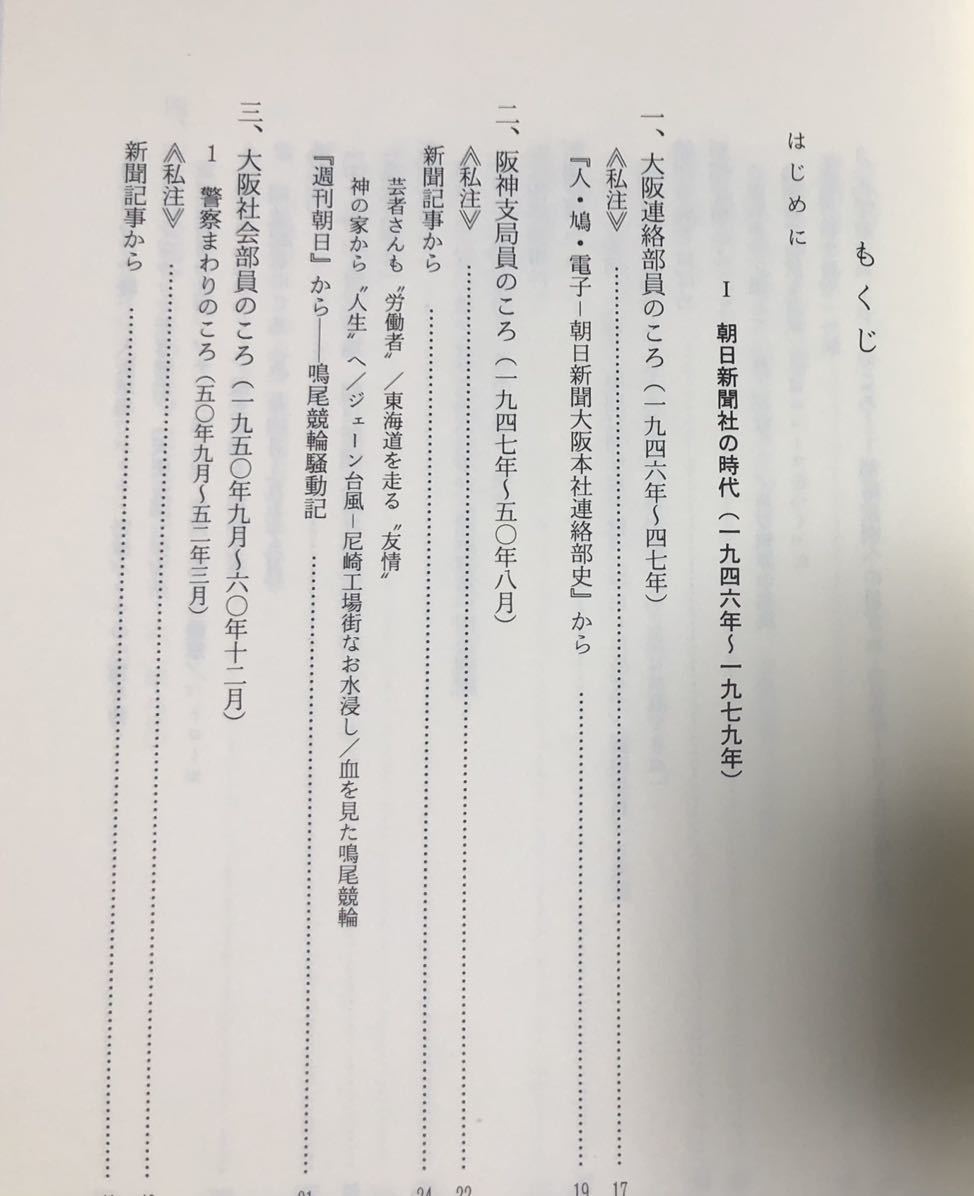 もくじ
はじめに
Ⅰ 朝日新聞社の時代（一九四六年〜一九七九年）
一、大阪連絡部員のころ（一九四六年〜四七年）
《私注》……………………17
『人・鳩・電子－朝日新聞大阪本社連絡部史』から……………………19
二、阪神支局員のころ（一九四七年〜五〇年八月）
《私注》……………………22
新聞記事から……………………24
芸者さんも〝労働者〟／東海道を走る〝友情〟
神の家から〝人生〟へ／ジェーン台風－尼崎工場街なお水浸し／血を見た鳴尾競輪
『週刊朝日』から――鳴尾競輪騒動記……………………
三、大阪社会部員のころ（一九五〇年九月〜六〇年十二月）
1 警察まわりのころ（五〇年九月〜五二年三月）
《私注》……………………
新聞記事から……………………